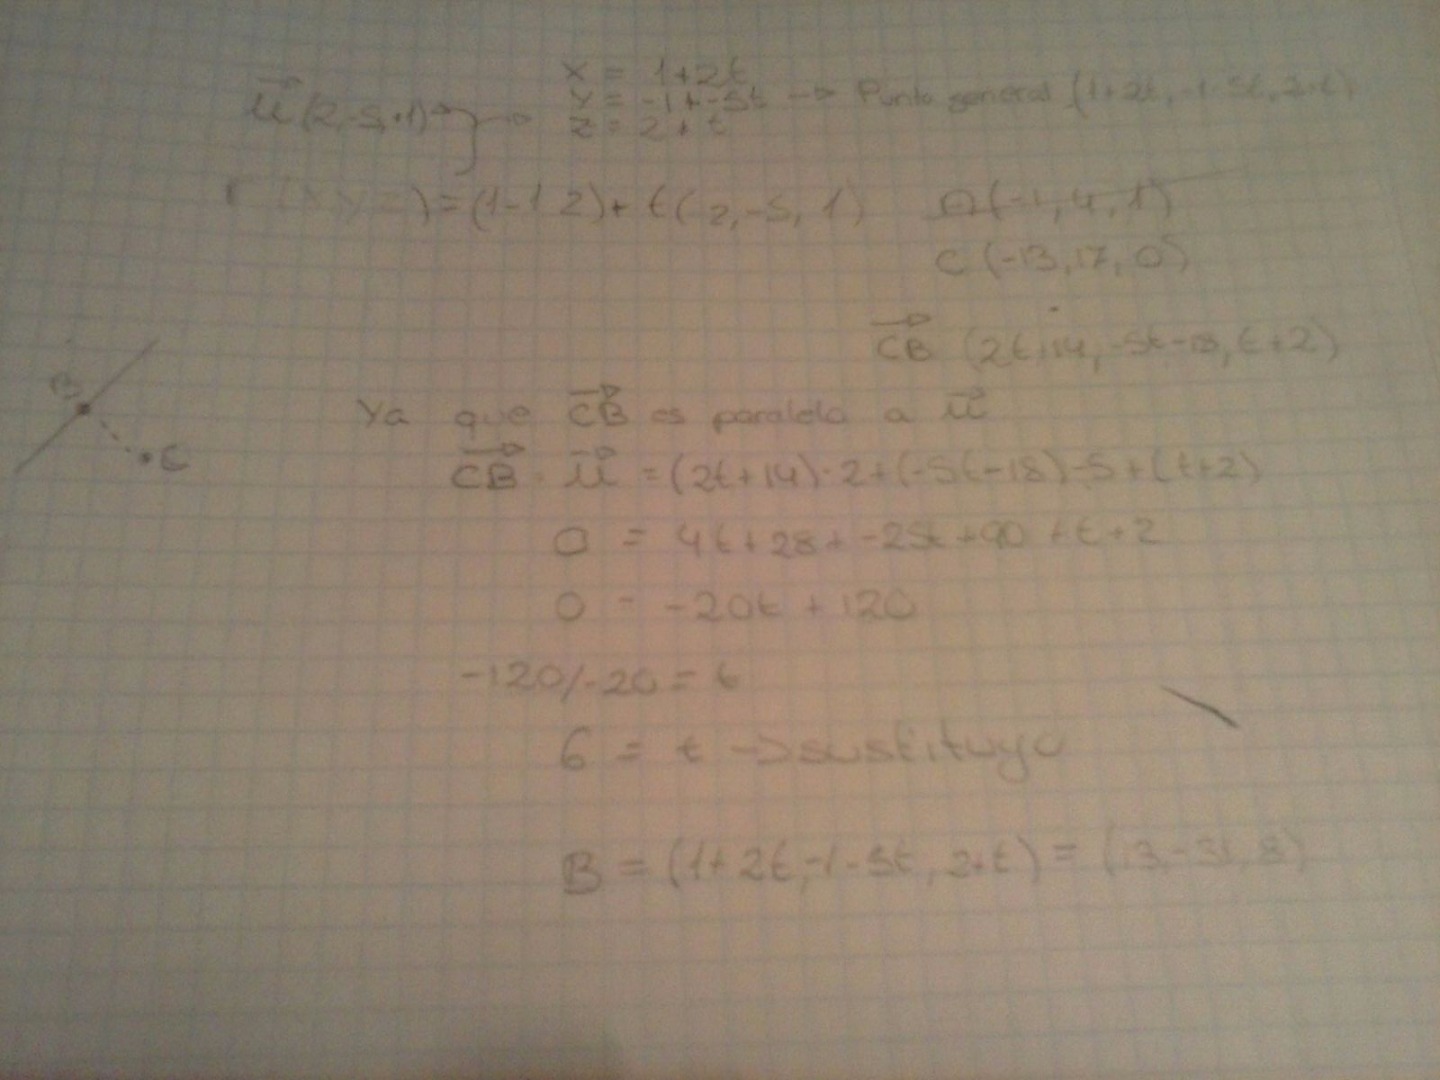 x = 1+2t
u (2,-5,+1) → y = -1+-5t → Punto general (1+2t, -1-5t, 2+t)
z = 2+t
r (x y z) = (1 -1 2) + t(2,-5,1) A(-1,4,1)
C (-13,17,0)
CB (2t+14, -5t-18, t+2)
B
C
Ya que CB es paralelo a u
CB · u = (2t+14)·2+(-5t-18)-5+(t+2)
0 = 4t+28+-25t+90+t+2
0 = -20t + 120
-120/-20 = t
6 = t → sustituyo
B = (1+2t,-1-5t,2+t) = (13,-31,8)